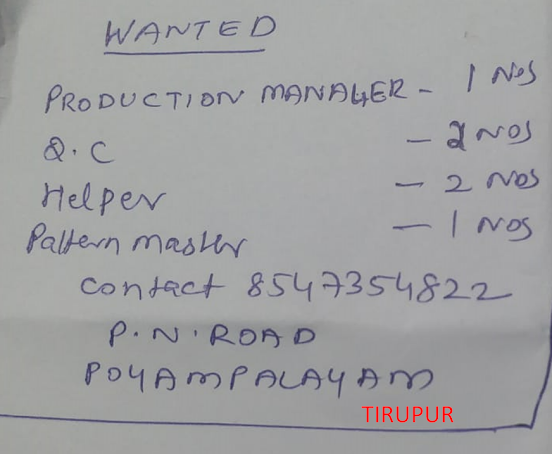 WANTED
PRODUCTION MANAGER - 1 NOS
Q.C - 2 NOS
Helper - 2 NOS
Pattern master - 1 NOS
contact 8547354822
P.N.ROAD
POYAMPALAYAM
TIRUPUR